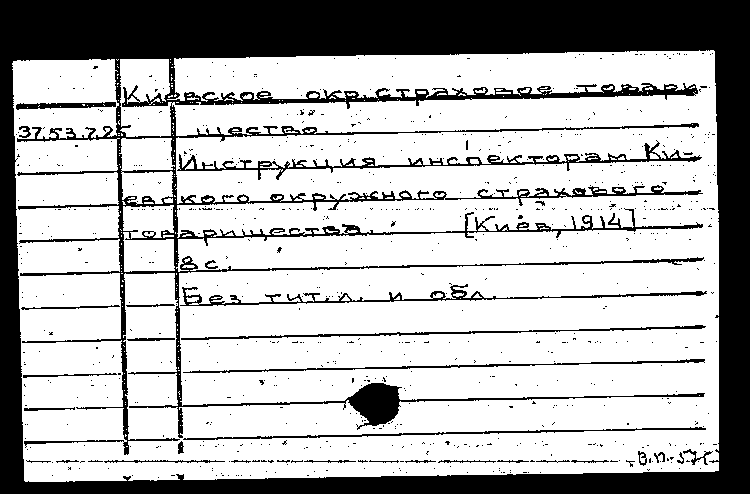 Киевское окр.страховое товари-
37.53.7.25 щество.
Инструкция инспекторам Ки-
евского окружного страхового
товарищества. [Киев, 1914]
8с.
Без тит.л. и обл.